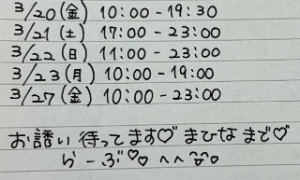 3/20(金) 10:00-19:30
3/21(土) 17:00-23:00
3/22(日) 11:00-23:00
3/23(月) 10:00-19:00
3/27(金) 10:00-23:00
お誘い待ってます♡まひなまで♡
らーぶ♡♡ ^^